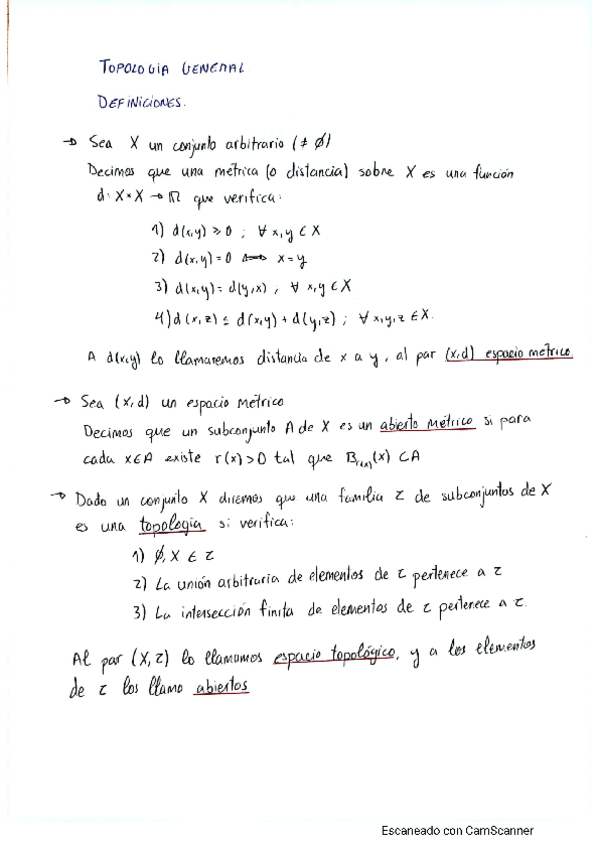 TOPOLOGÍA GENERAL
DEFINICIONES.
→ Sea X un conjunto arbitrario (≠ ∅)
Decimos que una métrica (o distancia) sobre X es una función
d: X×X → ℝ que verifica:
1) d(x,y) ≥ 0 ; ∀ x,y ∈ X
2) d(x,y) = 0 ⟺ x = y
3) d(x,y) = d(y,x) , ∀ x,y ∈ X
4) d(x,z) ≤ d(x,y) + d(y,z) ; ∀ x,y,z ∈ X.
A d(x,y) lo llamaremos distancia de x a y, al par (X,d) espacio métrico
→ Sea (X,d) un espacio métrico
Decimos que un subconjunto A de X es un abierto métrico si para
cada x∈A existe r(x)>0 tal que B_{r(x)}(x) ⊂ A
→ Dado un conjunto X diremos que una familia τ de subconjuntos de X
es una topología si verifica:
1) ∅, X ∈ τ
2) La unión arbitraria de elementos de τ pertenece a τ
3) La intersección finita de elementos de τ pertenece a τ.
Al par (X,τ) lo llamamos espacio topológico, y a los elementos
de τ los llamo abiertos
Escaneado con CamScanner